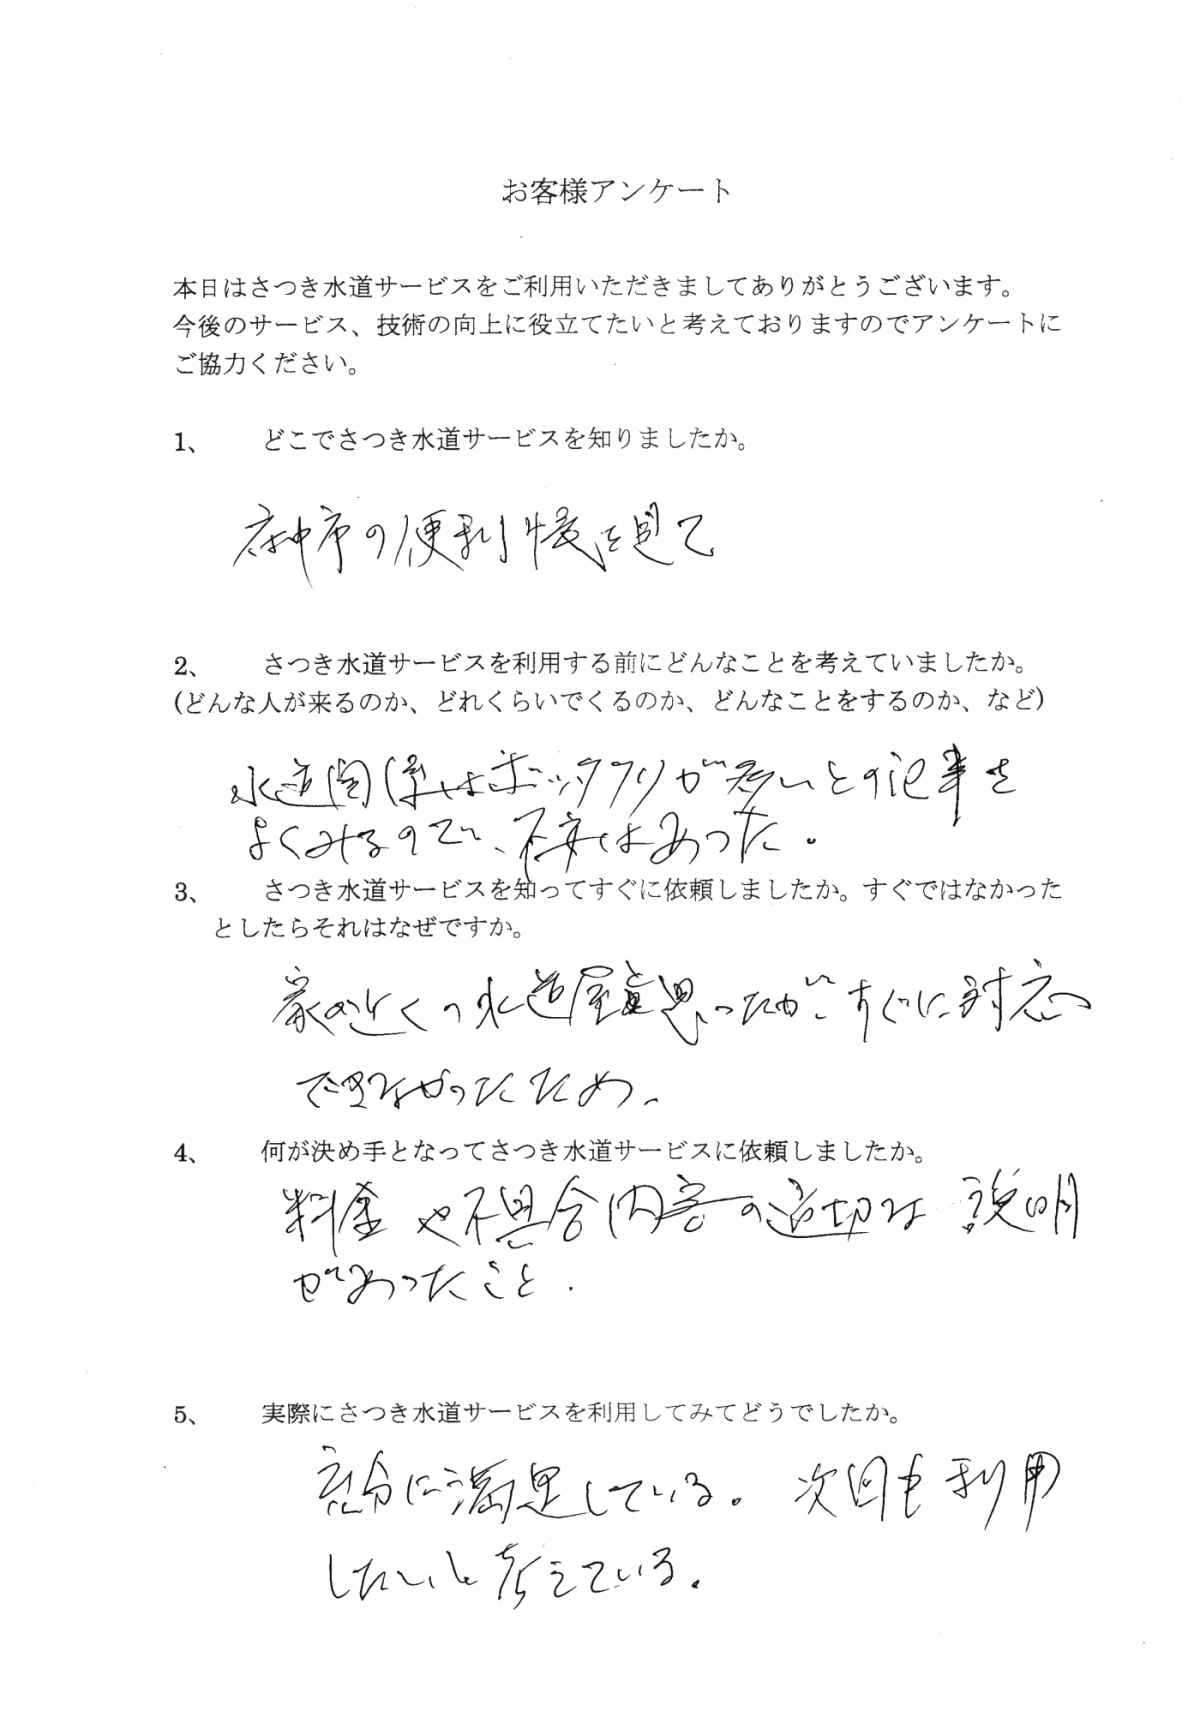 お客様アンケート
本日はさつき水道サービスをご利用いただきましてありがとうございます。
今後のサービス、技術の向上に役立てたいと考えておりますのでアンケートに
ご協力ください。
1、 どこでさつき水道サービスを知りましたか。
府中市の便利帳を見て
2、 さつき水道サービスを利用する前にどんなことを考えていましたか。
(どんな人が来るのか、どれくらいでくるのか、どんなことをするのか、など)
水道関係はボッタクリが多いとの記事を
よくみるので、不安はあった。
3、 さつき水道サービスを知ってすぐに依頼しましたか。すぐではなかった
としたらそれはなぜですか。
家の近くの水道屋と思ったがすぐに対応
できなかったため、
4、 何が決め手となってさつき水道サービスに依頼しましたか。
料金や不具合内容の適切な説明
があったこと.
5、 実際にさつき水道サービスを利用してみてどうでしたか。
充分に満足している。次回も利用
したいと考えている。